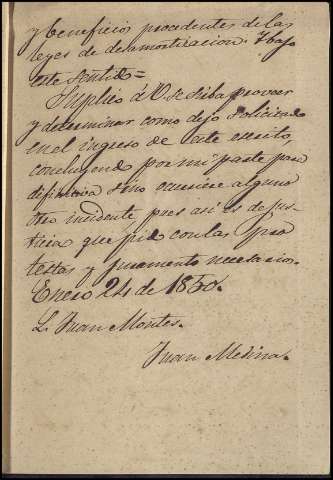 y beneficios procedentes de las
leyes de desamortizacion. Y bajo
este sentido=
Suplico á V. se sirba proveer
y determinar como dejo solicitado
en el ingreso de este escrito,
concluyendo por mi parte para
definitiva sino ocurriere alguno
otro incidente, pues así es de jus-
ticia que pido con las pro
testas y juramento necesarios.
Enero 24 de 1850.
L. Juan Montes.
Juan Medina.